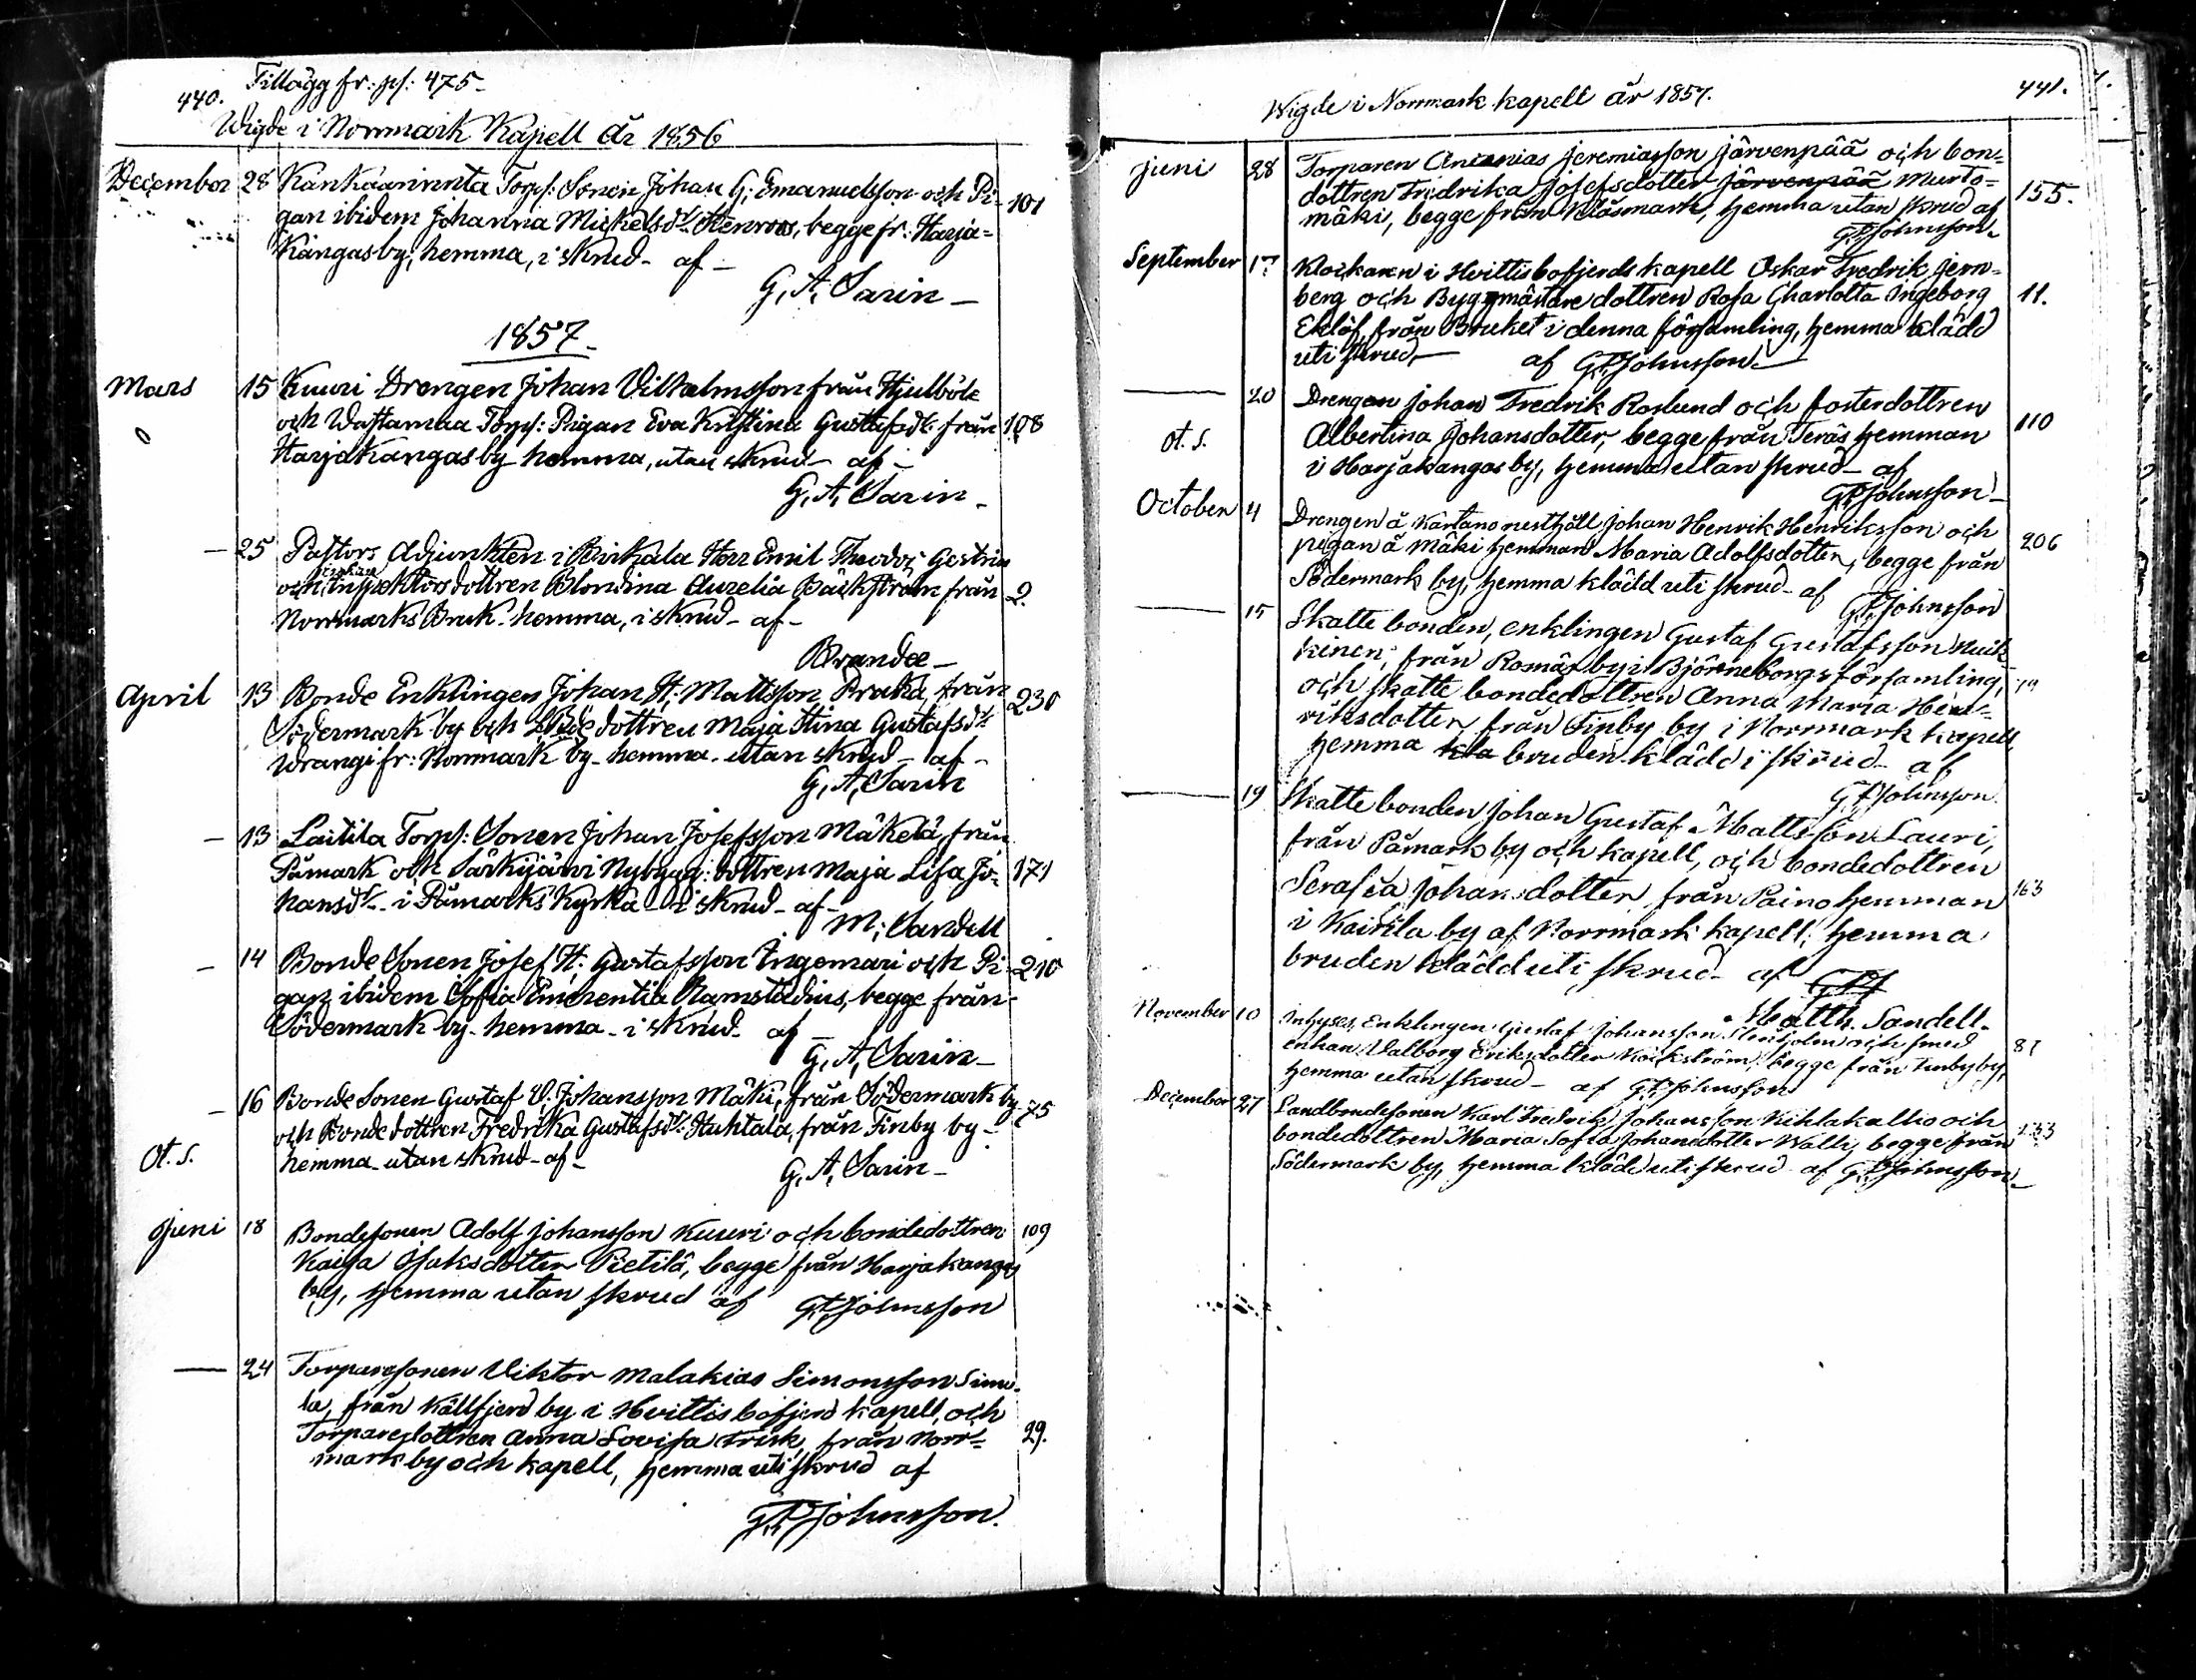 440. Tillägg fr: ps: 475.
Wigde i Norrmark Kapell år 1856
December 28 Kankaanrinta Torp: Sonen Johan G: Emanuelsson och Pi- 101
gan ibidem Johanna Mickelsdr Stenroos, begge fr: Harja-
kangas by, hemma, i skrud - af -
G. A. Sarin -
1857.
Mars 15 Kuuri Drengen Johan Vilhelmsson från Hjulböle
och Wastamaa Torp: Pigan Eva Kristina Gustafsdr från 108
Harjakangas by hemma, utan skrud - af -
G. A. Sarin -
- 25 Pastors Adjunkten i Birkala Herr Emil Theodor Gestrin
och Inspektors dottren Blondina Aurelia Bäckström från 2.
Norrmarks Bruk - hemma, i skrud - af -
Brander -
April 13 Bonde Enklingen Johan H: Mattsson Prakã, från 230
Södermark by och dottren Maja Stina Gustafsdr
Wrangi fr: Norrmark by - hemma - utan skrud - af -
G. A. Sarin
- 13 Laitila Torp: Sonen Johan Josefsson Mäkelä, från
Påmark och Särkijärvi Nybygg: dottren Maja Lisa Jo- 171
hansdr - i Påmarks Kyrka - i skrud - af -
M: Sandell
- 14 Bonde Sonen Josef H: Gustafsson Ingemari och Pi- 210
gan ibidem Sofia Emerentia Ramstadius, begge från
Södermark by - hemma - i skrud - af -
G. A. Sarin -
- 16 Bonde Sonen Gustaf V. Johansson Mäki, från Södermark by
och Bonde dottren Fredrika Gustafsdr Huhtala, från Finby by - 75
Ot. S. hemma - utan skrud - af -
G. A. Sarin -
Juni 18 Bondesonen Adolf Johansson Kuuri och bondedottren 109
Kaisa Isaksdotter Pietilä, begge från Harjakangas
by, hemma utan skrud af G. P. Johnsson
— 24 Torparesonen Viktor Malakias Simonsson Simo-
la, från Källfjerd by i Hvittisbofjerd kapell, och
Torparedottren Anna Lovisa Frisk, från Norr- 29.
mark by och kapell, hemma uti skrud af
G. P. Johnsson.
Wigde i Norrmark kapell år 1857. 441.
Juni 28 Torparen Ananias Jeremiasson Järvenpää och bon-
dottren Fredrika Josefsdotter Järvenpää Murto- 155.
mäki, begge från Klåsmark, hemma utan skrud af
G. P. Johnsson.
September 17 Klockaren i Hvittisbofjerds kapell Oskar Fredrik Jern-
berg och Byggmästare dottren Rosa Charlotta Ingeborg 11.
Eklöf, från Bruket i denna församling, hemma klädd
uti skrud, — af G. P. Johnsson —
— 20 Drengen Johan Fredrik Roslund och fosterdottren
Ot. S. Albertina Johansdotter, begge från Teräs hemman 110
i Harjakangas by, hemma utan skrud - af
G. P. Johnsson -
October 4 Drengen å Kartano rusthåll Johan Henrik Henriksson och
pigan å Mäki hemman Maria Adolfsdotter, begge från 206
Södermark by, hemma klädd uti skrud - af
G. P. Johnsson
— 15 Skatte bonden, enklingen Gustaf Gustafsson
kinen, från Romäs by i Björneborgs församling,
och skatte bondedottren Anna Maria Hen-
riksdotter, från Finby by i Norrmark kapell,
hemma kla bruden klädd i skrud - af
G. P. Johnsson.
— 19 Skatte bonden Johan Gustaf Mattsson Lauri,
från Påmark by och kapell, och bondedottren
Serafia Johansdotter, från Paino hemman 163
i Kairila by af Norrmark kapell, hemma
bruden klädd uti skrud - af GPJ
Matth. Sandell.
November 10 Inhyses Enklingen Gustaf Johansson Stenholm och smed
enkan Valborg Eriksdotter Kockström, begge från Finby by, 81
hemma utan skrud - af G. P. Johnsson
December 27 Landbondesonen Karl Fredrik Johansson Kihlakallio och
bondedottren Maria Sofia Johansdotter Walli, begge från 233
Södermark by, hemma klädd uti skrud af G. P. Johnsson -